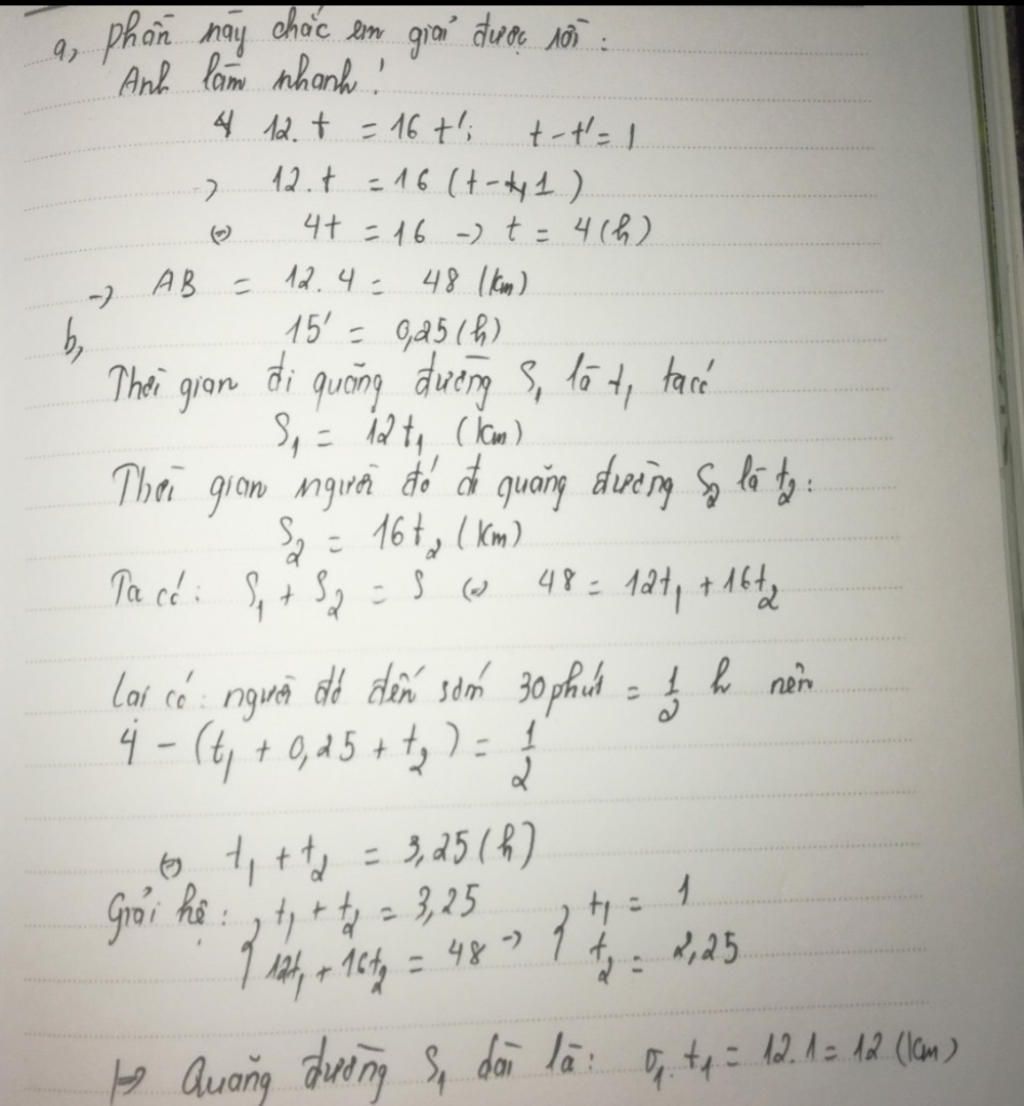 a, phần này chắc em giải được rồi :
Anh làm nhanh !
12. t = 16 t'; t - t' = 1
=> 12. t = 16 (t - 1)
<=> 4t = 16 -> t = 4 (h)
-> AB = 12. 4 = 48 (km)
b, 15' = 0,25 (h)
Thời gian đi quãng đường S₁ là t₁ ta có
S₁ = 12t₁ (km)
Thời gian người đó đi quãng đường S₂ là t₂ :
S₂ = 16t₂ (km)
Ta có : S₁ + S₂ = S <=> 48 = 12t₁ + 16t₂
Lại có : người đó đến sớm 30 phút = 1/2 h nên
4 - (t₁ + 0,25 + t₂) = 1/2
<=> t₁ + t₂ = 3,25 (h)
Giải hệ : { t₁ + t₂ = 3,25 -> { t₁ = 1
12t₁ + 16t₂ = 48 t₂ = 2,25
=> Quãng đường S₁ dài là : v₁. t₁ = 12. 1 = 12 (km)